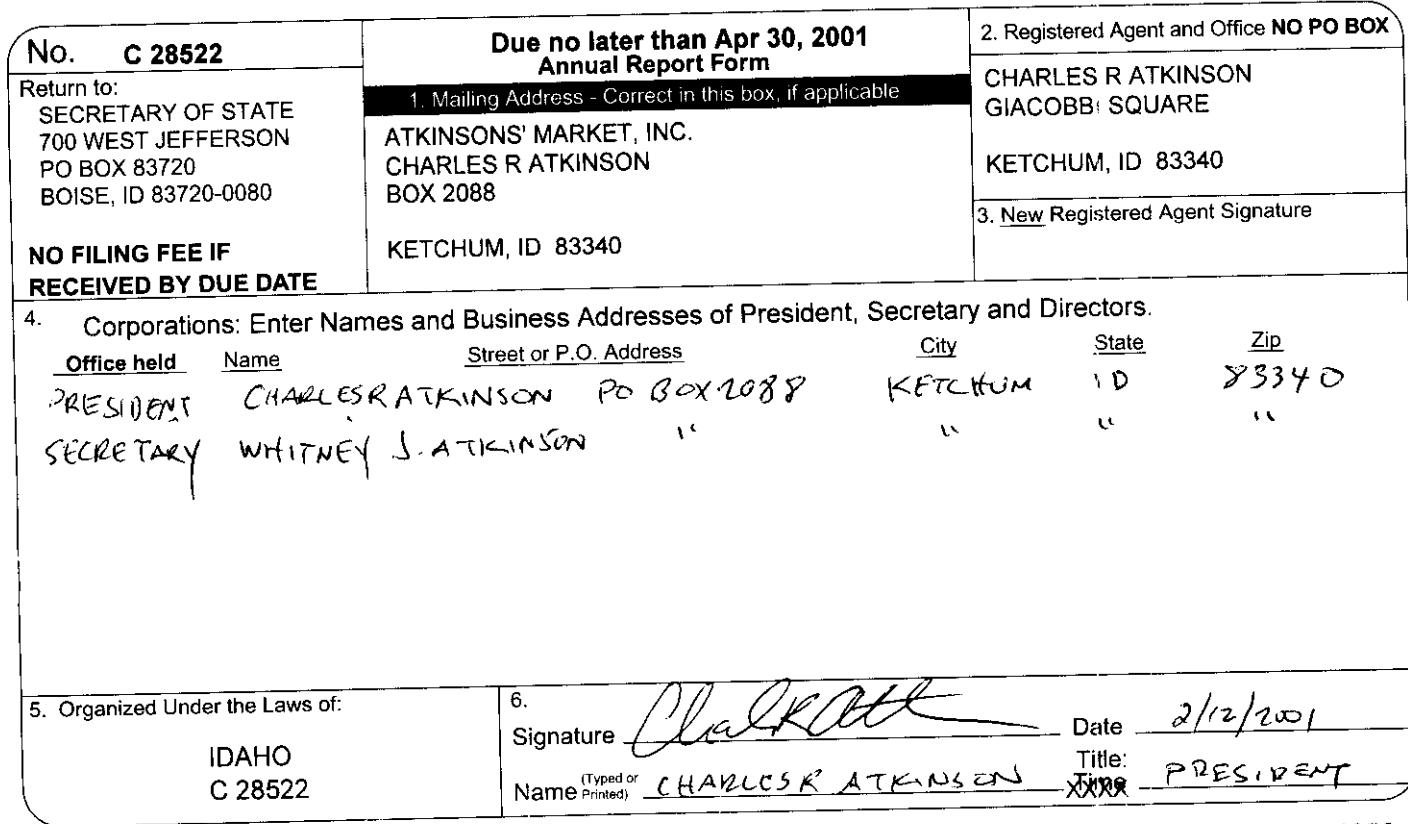 No. C 28522
Return to:
SECRETARY OF STATE
700 WEST JEFFERSON
PO BOX 83720
BOISE, ID 83720-0080
NO FILING FEE IF
RECEIVED BY DUE DATE
Due no later than Apr 30, 2001
Annual Report Form
1. Mailing Address - Correct in this box, if applicable
ATKINSONS' MARKET, INC.
CHARLES R ATKINSON
BOX 2088
KETCHUM, ID 83340
2. Registered Agent and Office NO PO BOX
CHARLES R ATKINSON
GIACOBBI SQUARE
KETCHUM, ID 83340
3. New Registered Agent Signature
4. Corporations: Enter Names and Business Addresses of President, Secretary and Directors.
Office held Name Street or P.O. Address City State Zip
PRESIDENT CHARLES R ATKINSON PO BOX 2088 KETCHUM ID 83340
SECRETARY WHITNEY J. ATKINSON " " " "
5. Organized Under the Laws of:
IDAHO
C 28522
6.
Signature Date 2/12/2001
Name (Typed or Printed) CHARLES R ATKINSON Title: PRESIDENT